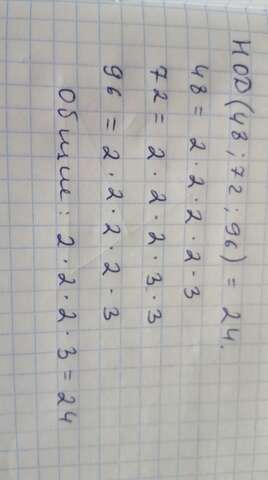 НОД (48; 72; 96) = 24.
48 = 2 · 2 · 2 · 2 · 3
72 = 2 · 2 · 2 · 3 · 3
96 = 2 · 2 · 2 · 2 · 3
Общие: 2 · 2 · 2 · 3 = 24